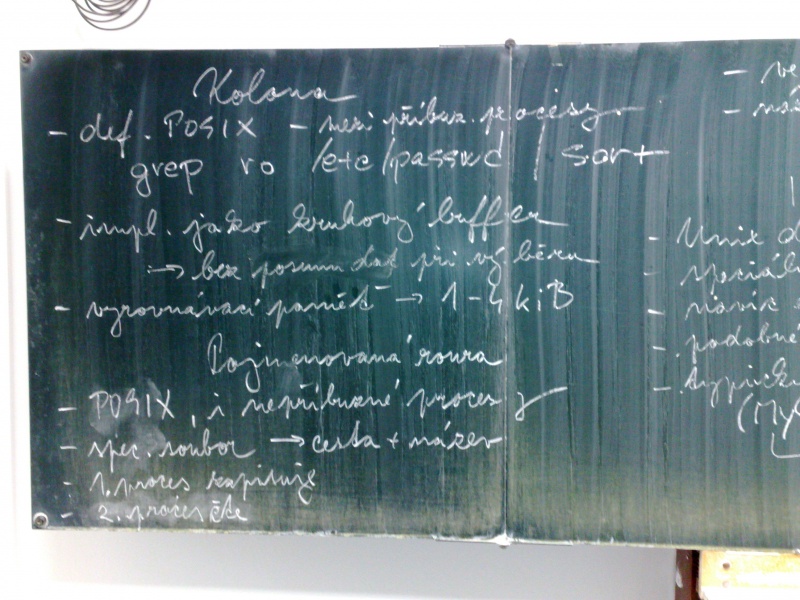 Kolona
- def. POSIX - mezi příbuz. procesy
grep ro /etc/passwd | sort
- impl. jako kruhový buffer
→ bez posunu dat při výběru
- vyrovnávací paměť → 1-4 kiB
Pojmenovaná roura
- POSIX, i nepříbuzné procesy
- spec. soubor → cesta + název
- 1. proces zapisuje
- 2. proces čte
- Unix d
- speciál
- navíc
- podobné
- typick
(My